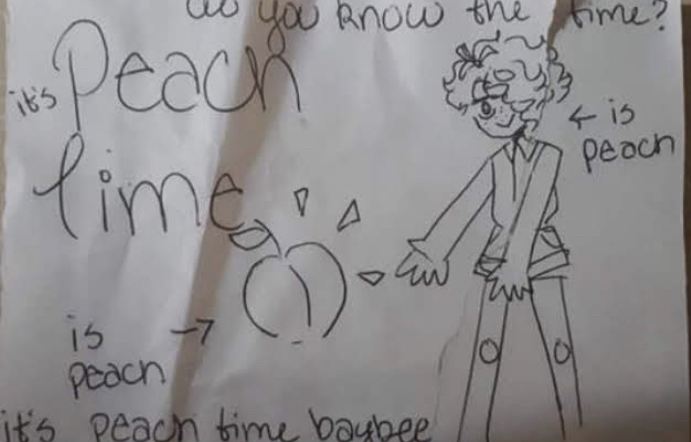 do you know the time?
it's Peach
time
← is
peach
is →
peach
it's peach time baybee